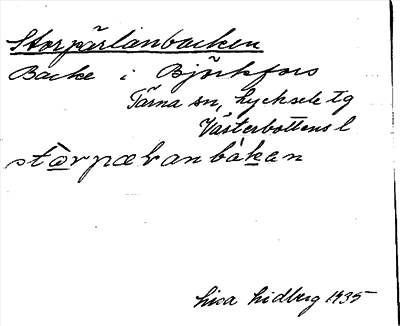 Storpärlanbacken
Backe i Björkfors
Tärna sn, Lycksele tg
Västerbottens l
stòrpæranbàkan
Lisa Lidberg 1935